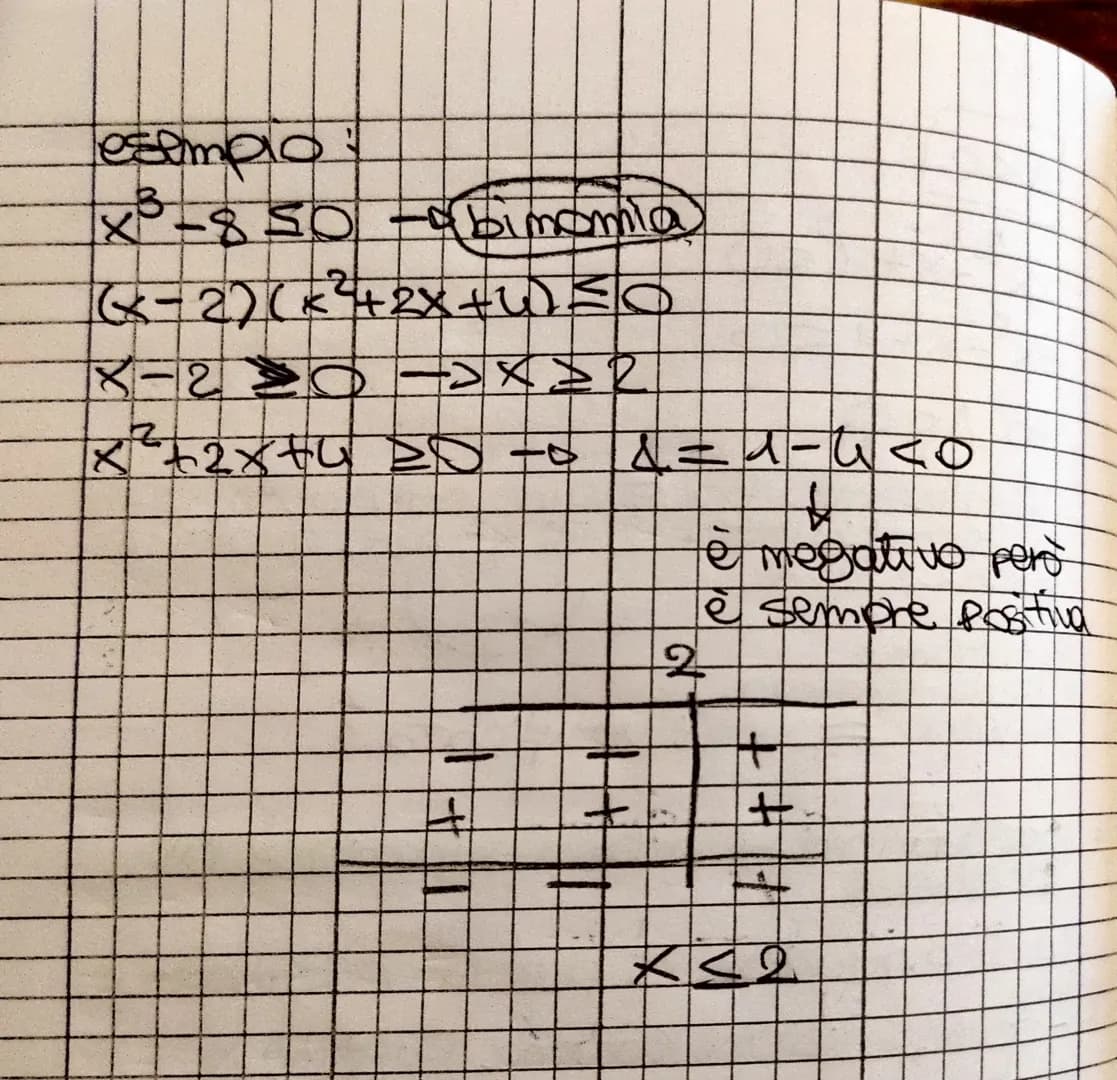 esempio:
x³-8≤0 → binomia
(x-2)(x²+2x+4)≤0
x-2≥0 → x≥2
x²+2x+4≥0 → Δ=1-4<0
↓
è negativo però
è sempre positiva
2
- - +
+ + +
- - +
x≤2